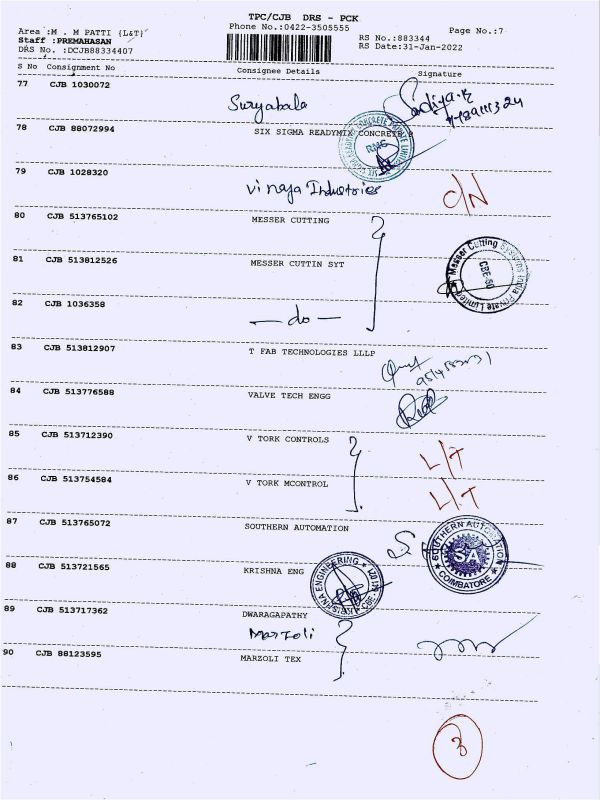 TPC/CJB DRS - PCK
Area :M . M PATTI {L&T} Phone No.:0422-3505555 Page No.:7
Staff :PREMAHASAN RS No.:883344
DRS No. :DCJB88334407 RS Date:31-Jan-2022
S No Consignment No Consignee Details Signature
77 CJB 1030072
Suryabala
78 CJB 88072994 SIX SIGMA READYMIX CONCRETE
RMC
79 CJB 1028320
Vinaya Industries C/N
80 CJB 513765102 MESSER CUTTING
81 CJB 513812526 MESSER CUTTIN SYT
Messer Cutting Systems India Private Limited
82 CJB 1036358
— do —
83 CJB 513812907 T FAB TECHNOLOGIES LLLP
84 CJB 513776588 VALVE TECH ENGG
85 CJB 513712390 V TORK CONTROLS L/T
86 CJB 513754584 V TORK MCONTROL L/T
87 CJB 513765072 SOUTHERN AUTOMATION
SOUTHERN AUTOMATION SA COIMBATORE
88 CJB 513721565 KRISHNA ENG
KRISHNA ENGINEERING
89 CJB 513717362 DWARAGAPATHY
Marzoli
90 CJB 88123595 MARZOLI TEX
3